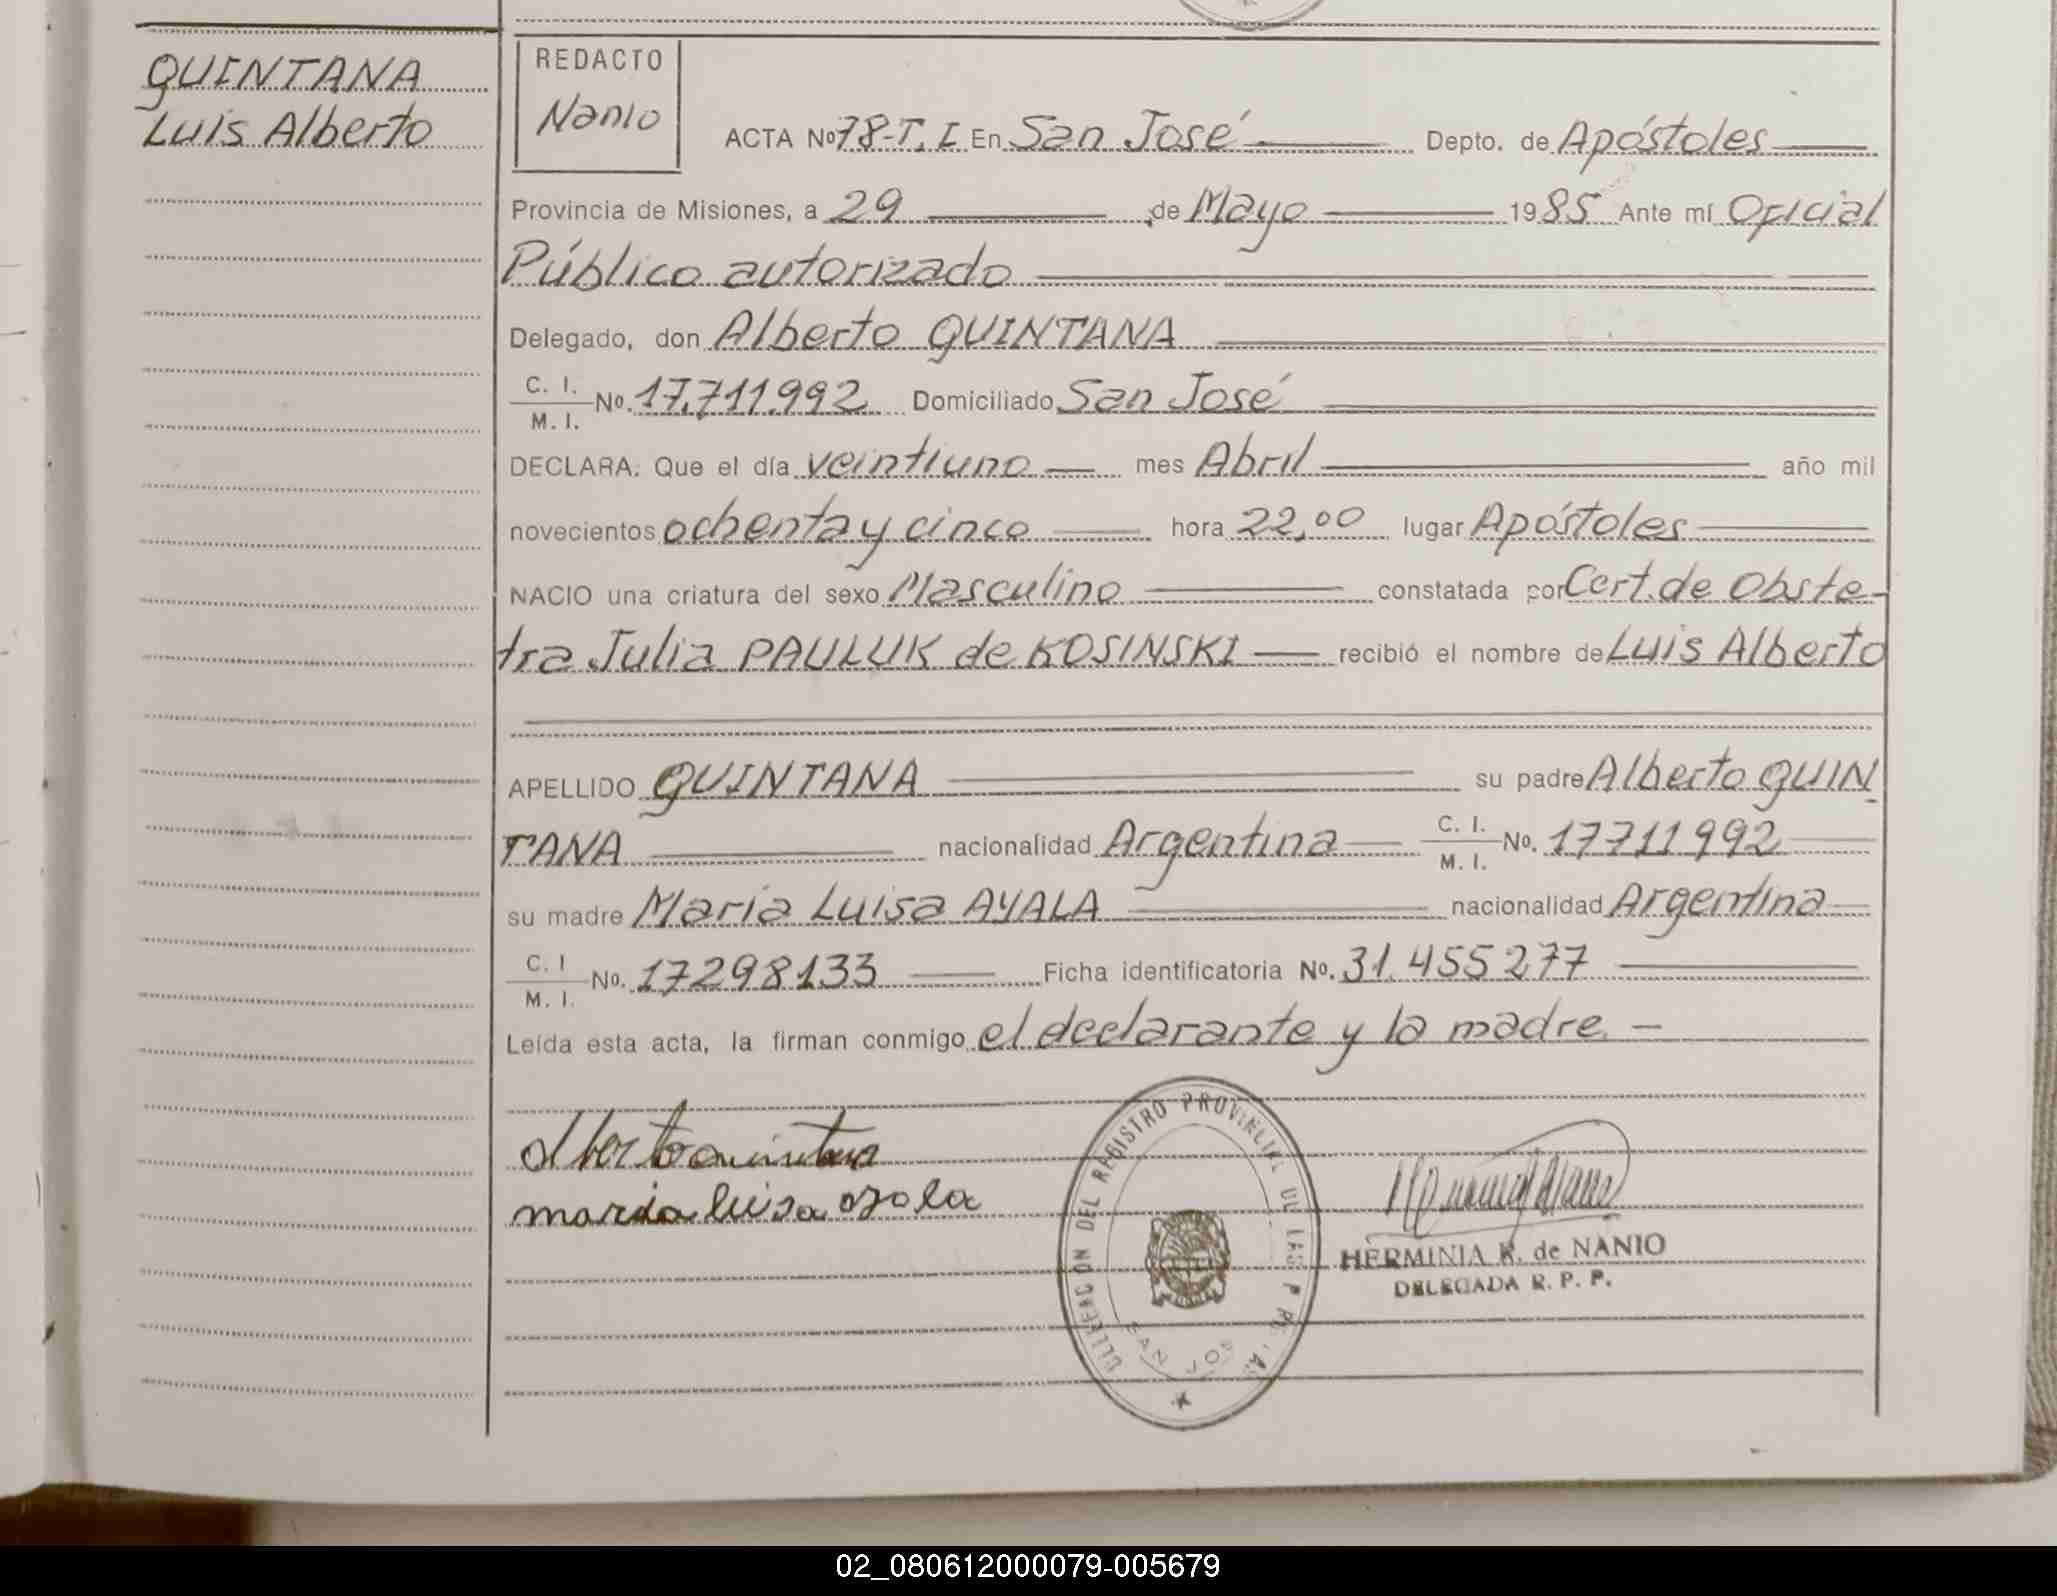 QUINTANA
Luis Alberto
REDACTO
Nanio
ACTA Nº 78-T. I En San José Depto. de Apóstoles
Provincia de Misiones, a 29 de Mayo 1985 Ante mí Oficial
Público autorizado
Delegado, don Alberto QUINTANA
C. I.
M. I. No. 17.711.992 Domiciliado San José
DECLARA: Que el día veintiuno mes Abril año mil
novecientos ochenta y cinco hora 22,00 lugar Apóstoles
NACIO una criatura del sexo Masculino constatada por Cert. de Obste-
tra Julia PAULUK de KOSINSKI recibió el nombre de Luis Alberto
APELLIDO QUINTANA su padre Alberto QUIN
TANA nacionalidad Argentina C. I.
M. I. No. 17711992
su madre María Luisa AYALA nacionalidad Argentina
C. I
M. I. No. 17298133 Ficha identificatoria No. 31.455277
Leída esta acta, la firman conmigo el declarante y la madre.
alberto quintana
maria luisa ayala
DELEGACION DEL REGISTRO PROVINCIAL DE LAS P
SAN JOS
HERMINIA R. de NANIO
DELEGADA R. P. P.
02_080612000079-005679